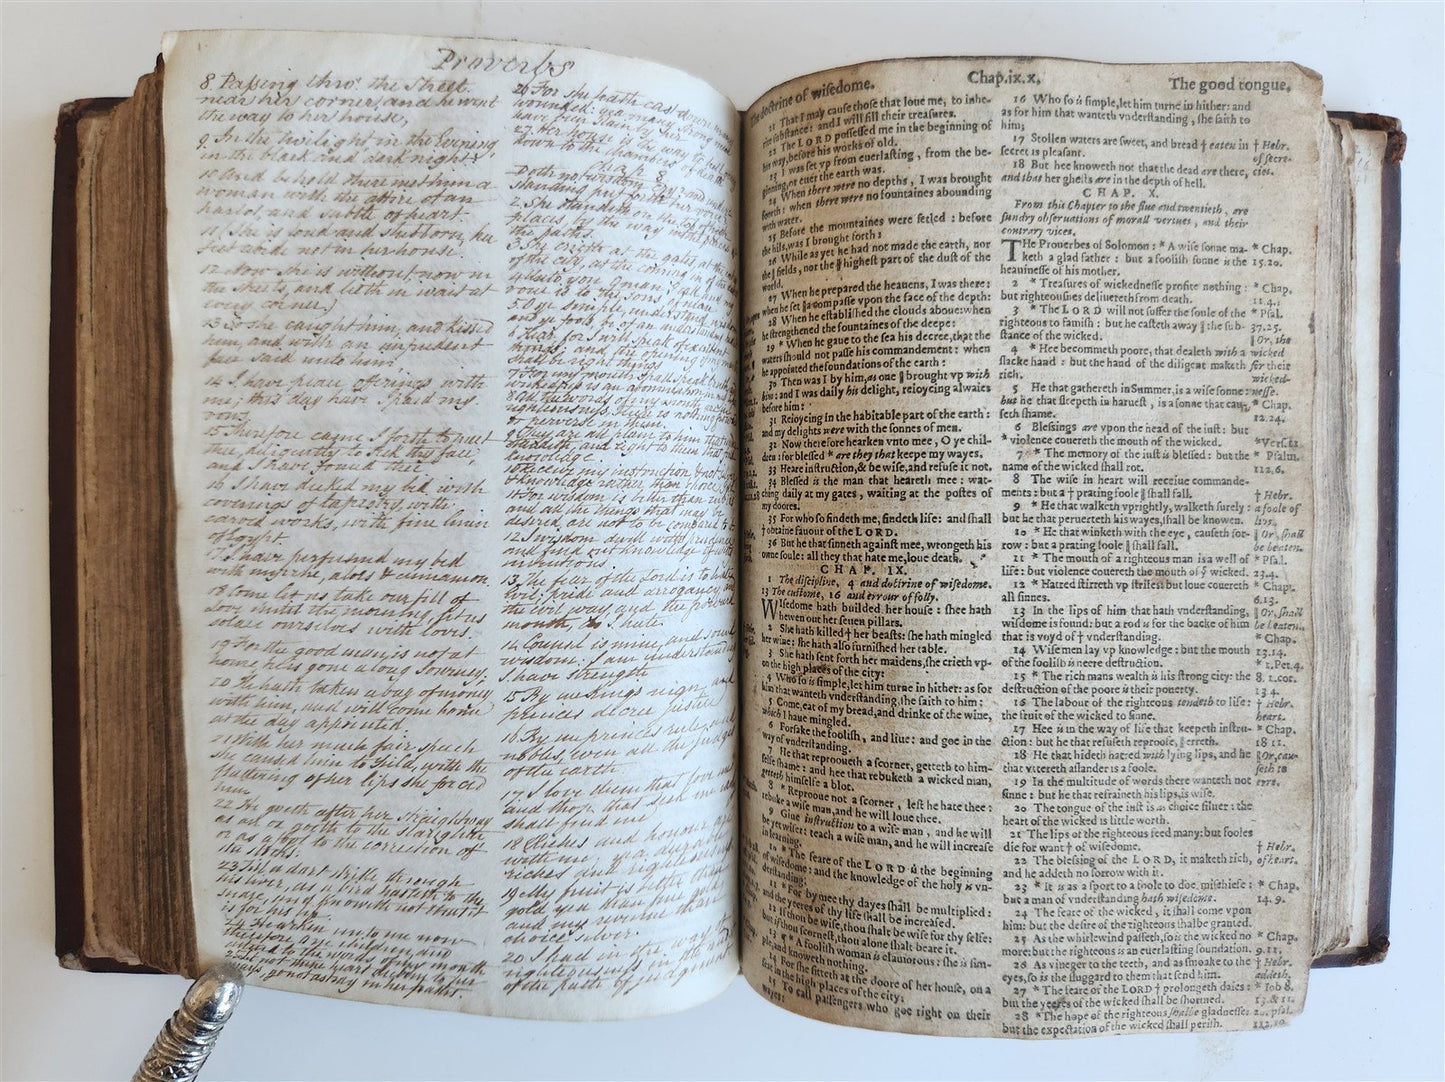 Proverbs
8 Passing thro' the Street
near her corner, and he went
the way to her house,
9 In the twilight in the Evening,
in the black and dark night:
10 And behold there met him a
woman with the attire of an
harlot, and subtle of heart.
11 She is loud and stubborn, her
feet abide not in her house.
12 Now she is without, now in
the streets, and lieth in wait at
every corner)
13 So she caught him, and kissed
him, and with an impudent
face said unto him,
14 I have peace offerings with
me; this day have I paid my
vows
15 Therefore came I forth to meet
thee, diligently to seek thy face,
and I have found thee
16 I have decked my bed with
coverings of tapestry, with
carved works, with fine linen
of Egypt.
17 I have perfumed my bed
with myrrhe, aloes & cinnamon
18 Come let us take our fill of
love until the morning, let us
solace ourselves with loves.
19 For the good man is not at
home, he is gone a long Journey.
20 He hath taken a bag of money
with him, and will come home
at the day appointed
21 With her much fair speech
she caused him to yield, with the
flattering of her lips she forced
him
22 He goeth after her straightway
as an ox goeth to the slaughter
or as a fool to the correction of
the stocks.
23 Till a dart strike through
his liver, as a bird hasteth to the
snare, and knoweth not that it
is for his life
24 Hearken unto me now
therefore, O ye children, and
attend to the words of my mouth
25 Let not thine heart decline to her
ways, go not astray in her paths.
26 For she hath cast down many
wounded: yea many strong men
have been slain by her
27 Her house is the way to hell going
down to the chambers of death
Chap. 8
Doth not wisdom cry? and understanding put forth her voice?
2 She standeth on the top of high
places by the way in the places of
the paths.
3 She crieth at the gates, at the entry
of the city, at the coming in at the doors
4 Unto you, O men, I call and my
voice is to the sons of man
5 O ye simple, understand wisdom
and ye fools, be of an understanding heart
6 Hear, for I will speak of excellent
things, and the opening of my lips
shall be right things
7 For my mouth shall speak truth, and
wickedness is an abomination to my lips
8 All the words of my mouth are in
righteousness, there is nothing froward
or perverse in them.
9 They are all plain to him that
understandeth, and right to them that find
knowledge.
10 Receive my instruction, & not silver
& knowledge rather than choice gold
11 For wisdom is better than rubies
and all the things that may be
desired, are not to be compared to it
12 I wisdom dwell with prudence
and find out knowledge of witty
inventions.
13 The fear of the Lord is to hate
evil: pride and arrogancy, and
the evil way, and the froward
mouth, do I hate
14 Counsel is mine, and sound
wisdom: I am understanding
I have strength
15 By me kings reign, and
princes decree justice
16 By me princes rule, and
nobles, even all the judges
of the earth
17 I love them that love me
and those that seek me early
shall find me
18 Riches and honour are
with me: yea durable
riches and righteousness
19 My fruit is better than
gold, yea than fine gold,
and my revenue than
choice silver.
20 I lead in the way of
righteousness, in the midst
of the paths of judgment
The doctrine of wisedome.
Chap.ix.x.
The good tongue.
21 That I may cause those that loue me, to inhe-
rite substance: and I will fill their treasures.
22 The LORD possessed me in the beginning of
his way, before his works of old.
23 I was set vp from euerlasting, from the be-
ginning, or euer the earth was.
24 When there were no depths, I was brought
foorth: when there were no fountaines abounding
with water.
25 Before the mountaines were setled: before
the hils, was I brought forth:
26 While as yet he had not made the earth, nor
the ‖ fields, nor the ‖ highest part of the dust of the
world.
27 When he prepared the heauens, I was there:
when he set ‖ a compasse vpon the face of the depth:
28 When he established the clouds aboue: when
he strengthened the fountaines of the deepe:
29 * When he gaue to the sea his decree, that the
waters should not passe his commandement: when
he appointed the foundations of the earth:
30 Then was I by him, as one ‖ brought vp with
him: and I was daily his delight, reioycing alwaies
before him:
31 Reioycing in the habitable part of the earth:
and my delights were with the sonnes of men.
32 Now therefore hearken vnto mee, O ye chil-
dren: for blessed * are they that keepe my wayes.
33 Heare instruction, & be wise, and refuse it not.
34 Blessed is the man that heareth mee: wat-
ching daily at my gates, waiting at the postes of
my doores.
35 For who so findeth me, findeth life: and shall
† obtaine fauour of the LORD.
36 But he that sinneth against mee, wrongeth his
owne soule: all they that hate me, loue death.
CHAP. IX.
1 The discipline, 4 and doctrine of wisedome.
13 The custome, 16 and errour of folly.
WIsedome hath builded her house: shee hath
hewen out her seuen pillars.
2 She hath killed † her beasts: she hath mingled
her wine: she hath also furnished her table.
3 She hath sent forth her maidens, she crieth vp-
on the high places of the city:
4 Who so is simple, let him turne in hither: as for
him that wanteth vnderstanding, she saith to him:
5 Come, eat of my bread, and drinke of the wine,
which I haue mingled.
6 Forsake the foolish, and liue: and goe in the
way of vnderstanding.
7 He that reprooueth a scorner, getteth to him-
selfe shame: and hee that rebuketh a wicked man,
getteth himselfe a blot.
8 * Reprooue not a scorner, lest he hate thee:
rebuke a wise man, and he will loue thee.
9 Giue instruction to a wise man, and he will
be yet wiser: teach a wise man, and he will increase
in learning.
10 * The feare of the LORD is the beginning
of wisedome: and the knowledge of the holy is vn-
derstanding.
11 * For by mee thy dayes shall be multiplied:
and the yeeres of thy life shall be increased.
12 If thou be wise, thou shalt be wise for thy selfe:
but if thou scornest, thou alone shalt beare it.
13 ¶ * A foolish woman is clamorous: she is sim-
ple, and knoweth nothing.
14 For she sitteth at the doore of her house, on a
seat in the high places of the city:
15 To call passengers who goe right on their
wayes:
16 Who so is simple, let him turne in hither: and
as for him that wanteth vnderstanding, she saith to
him;
17 Stollen waters are sweet, and bread † eaten in
secret is pleasant.
18 But hee knoweth not that the dead are there,
and that her ghests are in the depth of hell.
CHAP. X.
From this Chapter to the fiue and twentieth, are
sundry obseruations of morall vertues, and their
contrary vices.
THe Prouerbes of Solomon: * A wise sonne ma-
keth a glad father: but a foolish sonne is the
heauinesse of his mother.
2 * Treasures of wickednesse profite nothing:
but righteousnes deliuereth from death.
3 * The LORD will not suffer the soule of the
righteous to famish: but he casteth away ‖ the sub-
stance of the wicked.
4 * Hee becommeth poore, that dealeth with a
slacke hand: but the hand of the diligent maketh
rich.
5 He that gathereth in Summer, is a wise sonne:
but he that sleepeth in haruest, is a sonne that cau-
seth shame.
6 Blessings are vpon the head of the iust: but
* violence couereth the mouth of the wicked.
7 * The memory of the iust is blessed: but the
name of the wicked shall rot.
8 The wise in heart will receiue commande-
ments: but a † prating foole ‖ shall fall.
9 * He that walketh vprightly, walketh surely:
but he that peruerteth his wayes, shall be knowen.
10 * He that winketh with the eye, causeth sor-
row: but a prating foole ‖ shall fall.
11 * The mouth of a righteous man is a well of
life: but violence couereth the mouth of ye wicked.
12 * Hatred stirreth vp strifes: but loue couereth
all sinnes.
13 In the lips of him that hath vnderstanding,
wisdome is found: but a rod is for the backe of him
that is voyd of † vnderstanding.
14 Wise men lay vp knowledge: but the mouth
of the foolish is neere destruction.
15 * The rich mans wealth is his strong city: the
destruction of the poore is their pouerty.
16 The labour of the righteous tendeth to life:
the fruit of the wicked to sinne.
17 Hee is in the way of life that keepeth instru-
ction: but he that refuseth reproofe, ‖ erreth.
18 He that hideth hatred with lying lips, and he
that vttereth a slander is a foole.
19 In the multitude of words there wanteth not
sinne: but he that refraineth his lips, is wise.
20 The tongue of the iust is as choice siluer: the
heart of the wicked is little worth.
21 The lips of the righteous feed many: but fooles
die for want † of wisedome.
22 The blessing of the LORD, it maketh rich,
and he addeth no sorrow with it.
23 * It is as a sport to a foole to doe mischiefe:
but a man of vnderstanding hath wisedome.
24 The feare of the wicked, it shall come vpon
him: but the desire of the righteous shalbe granted.
25 As the whirlewind passeth, so is the wicked no
more: but the righteous is an euerlasting foundation.
26 As vineger to the teeth, and as smoake to the
eyes, so is the sluggard to them that send him.
27 * The feare of the LORD † prolongeth daies:
but the yeeres of the wicked shall be shortned.
28 * The hope of the righteous shalbe gladnesse:
but the expectation of the wicked shall perish.
† Hebr.
of secre-
cies.
* Chap.
15.20.
* Chap.
11.4.
* Psal.
37.25.
‖ Or, the
wicked
for their
wicked-
nesse.
* Chap.
12.24.
* Vers.11
* Psalm.
112.6.
† Hebr.
a foole of
lips.
‖ Or, shall
be beaten.
* Psal.
* Chap.
6.13.
‖ Or, shall
be beaten.
* Chap.
13.14.
* 1.Pet.4.
8. 1.cor.
13 4.
† Hebr.
heart.
* Chap.
18 11.
‖ Or, cau-
seth to
erre.
† Hebr.
of heart.
* Chap.
14. 9.
* Chap.
9.11.
† Hebr.
addeth.
* Iob 8.
13. & 11.
20. psal.
112.10.